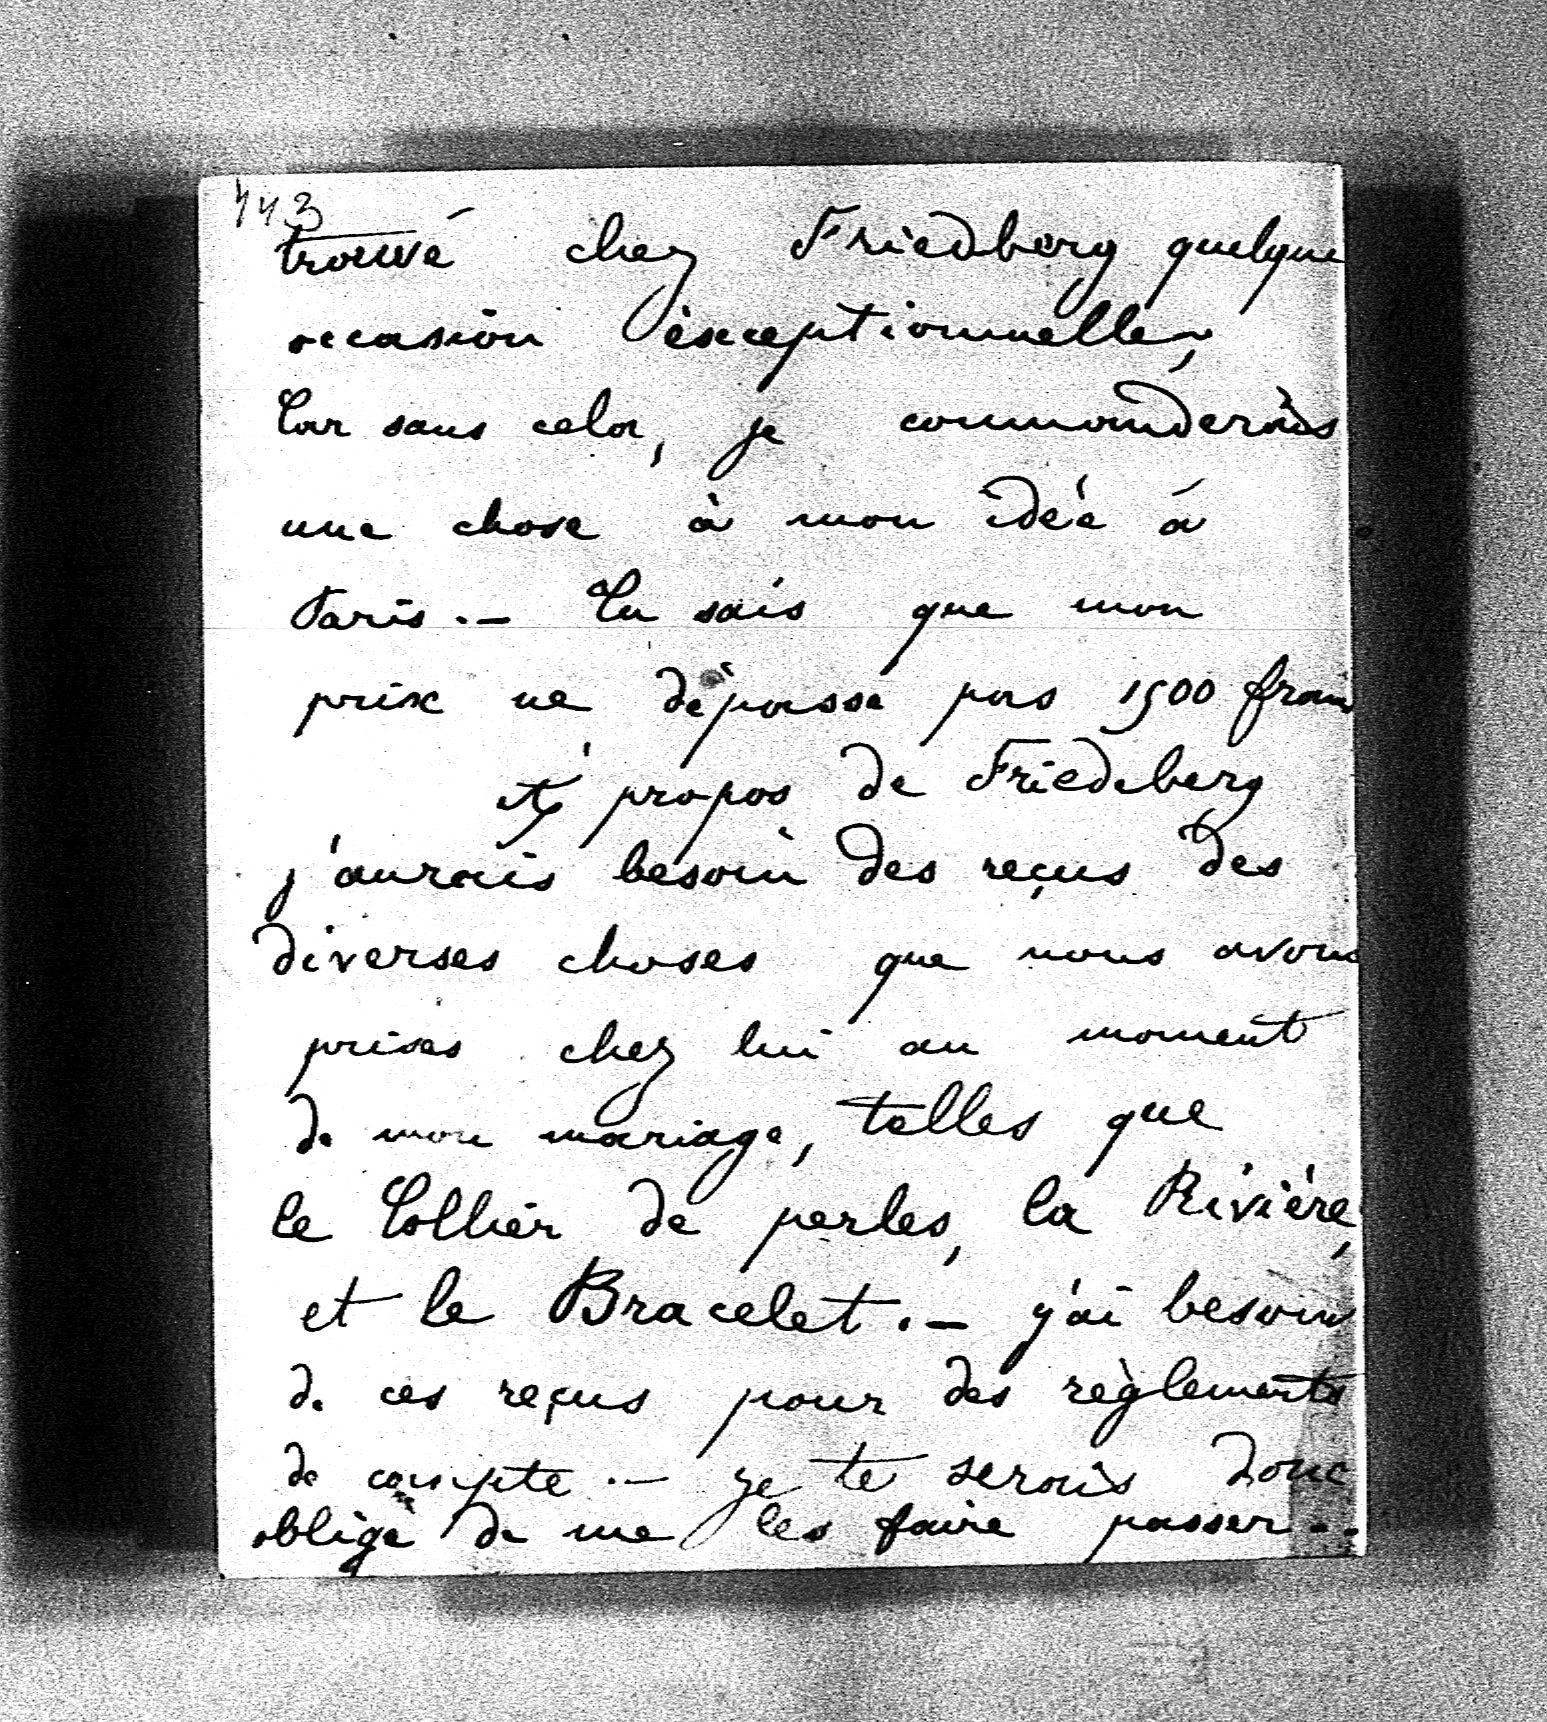 443
trouvé chez Friedberg quelque
occasion exceptionnelle,
Car sans cela, je commanderais
une chose à mon idée à
Paris. — Tu sais que mon
prix ne dépasse pas 1500 francs
À propos de Friedeberg
j'aurais besoin des reçus des
diverses choses que nous avons
prises chez lui au moment
de mon mariage, telles que
le Collier de perles, la Rivière,
et le Bracelet. — j'ai besoin
de ces reçus pour des règlements
de compte. — je te serais donc
obligé de me les faire passer..